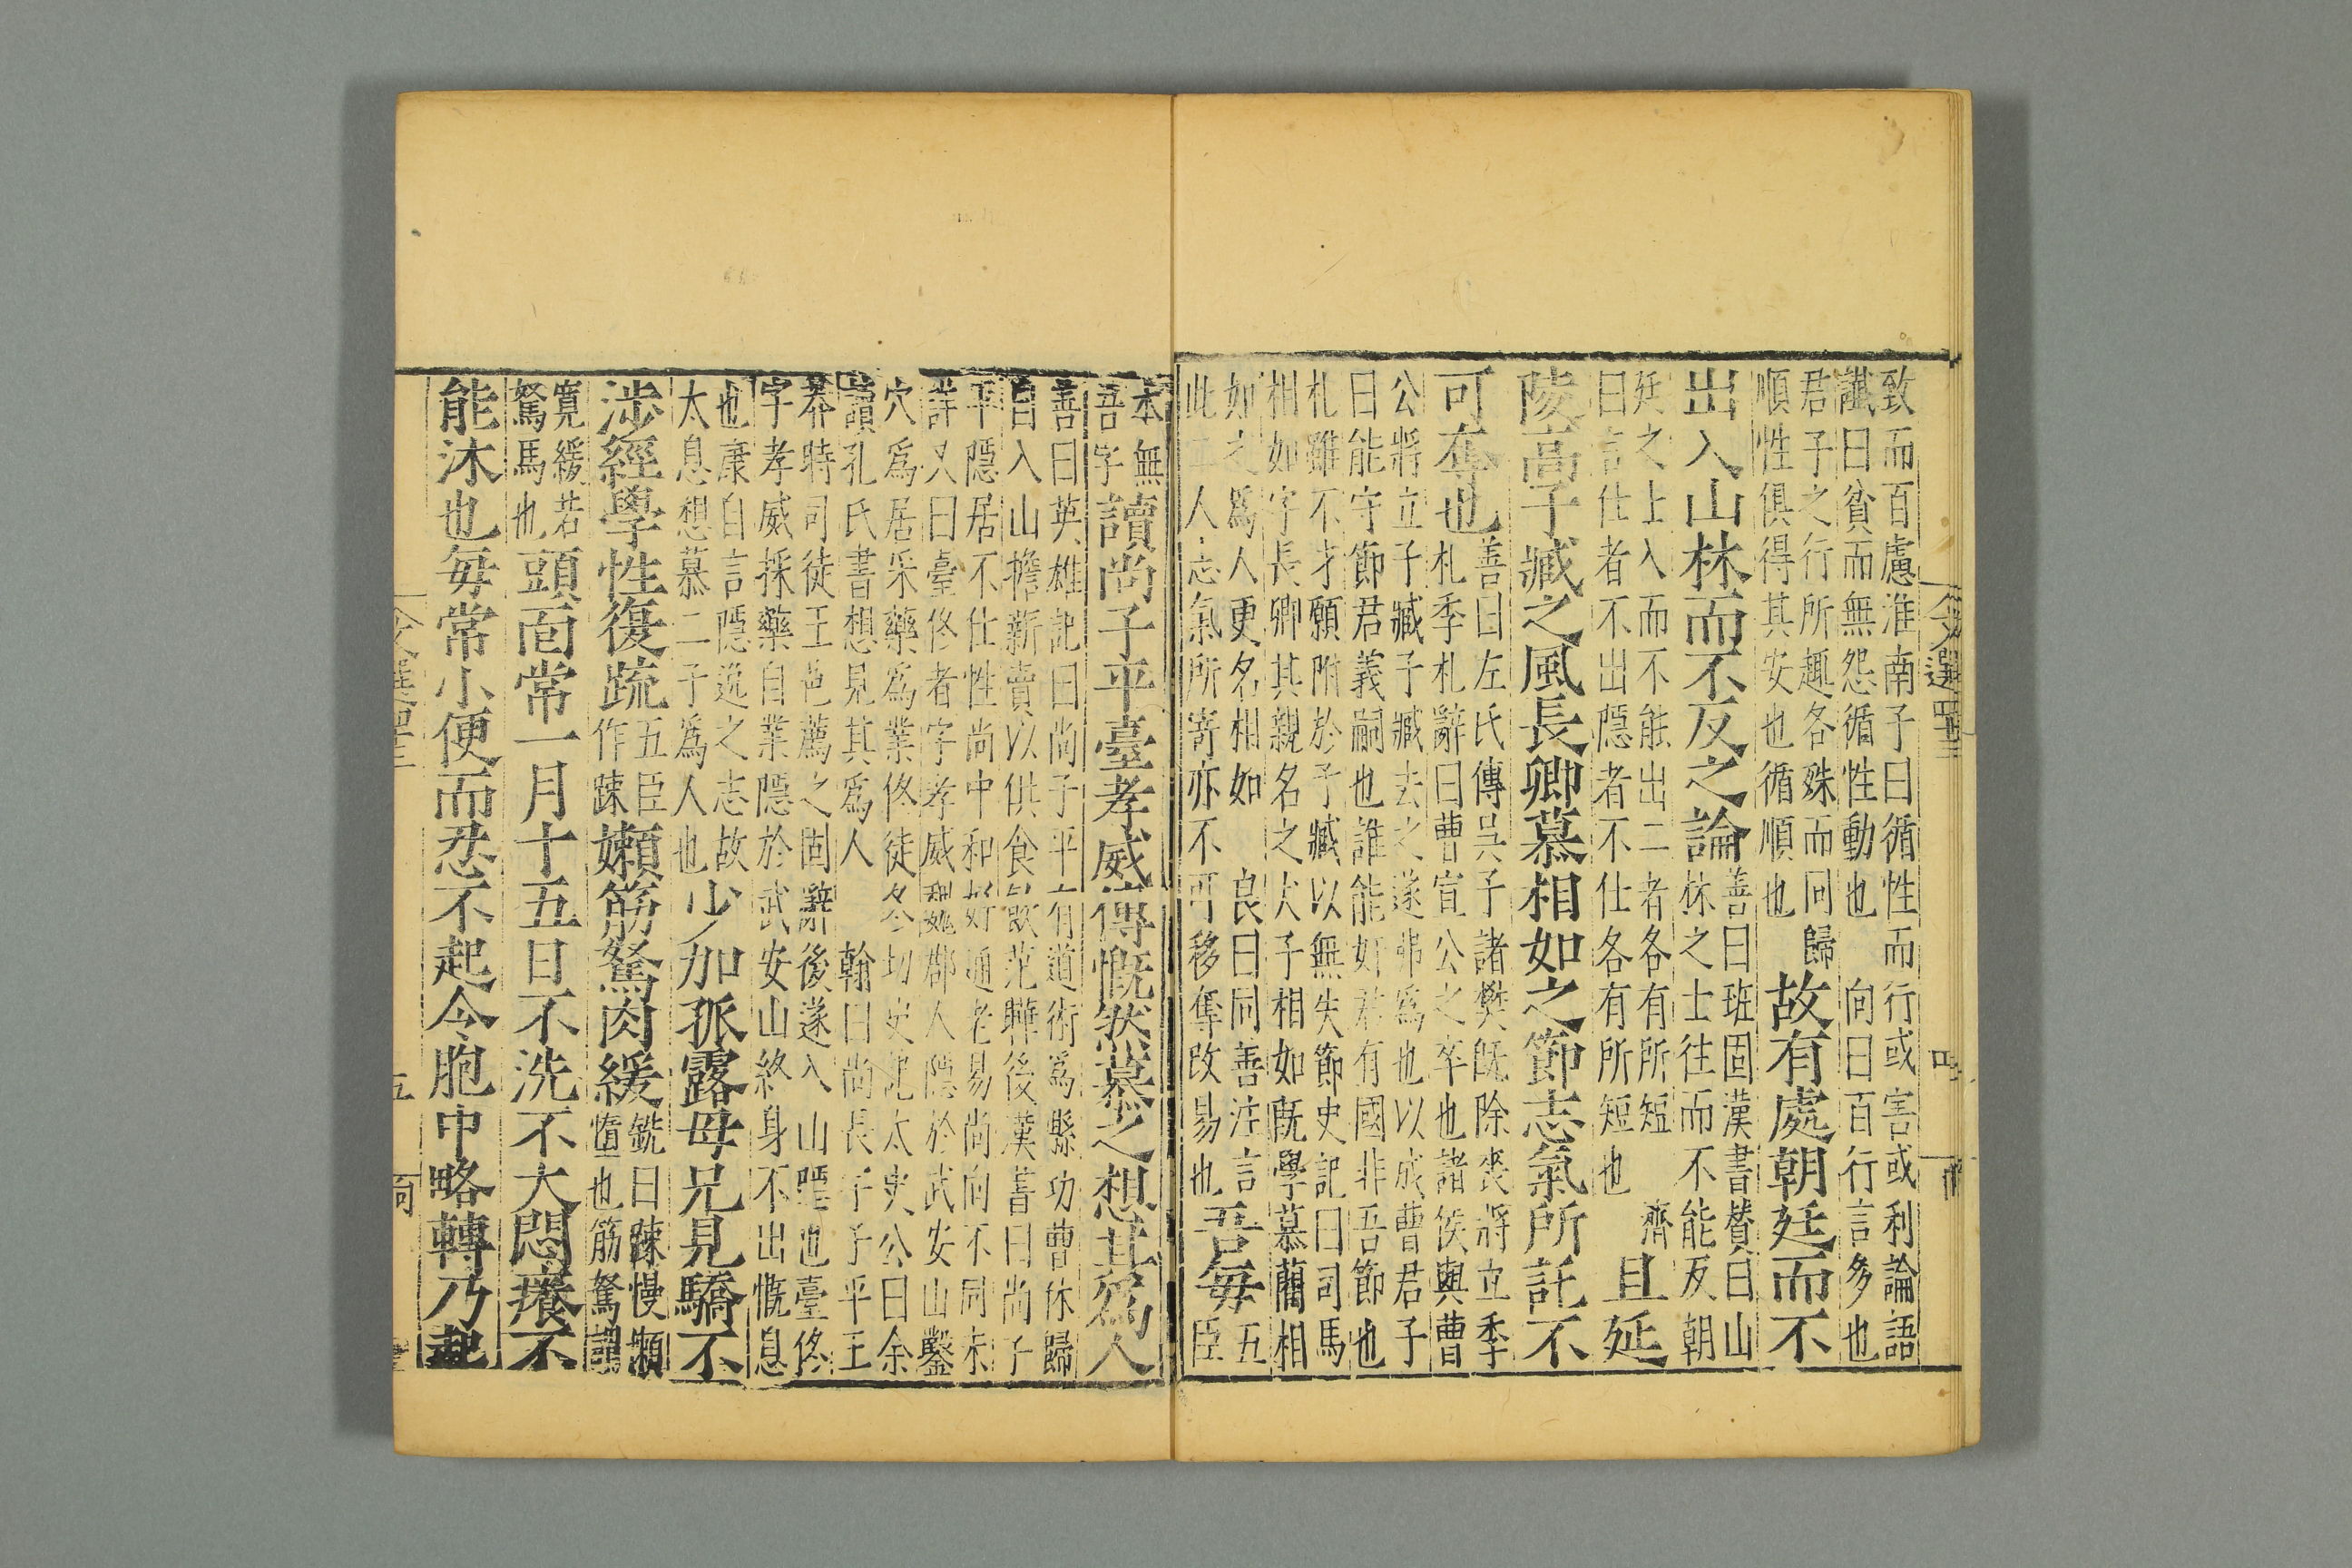 致而百慮淮南子曰循性而行或害或利論語
讖曰貧而無怨循性動也　向曰百行言多也
君子之行所趣各殊而同歸
順性俱得其安也循順也
故有處朝廷而不
出入山林而不反之論
善曰班固漢書賛曰山
林之士往而不能反朝
廷之士入而不能出二者各有所短　濟
曰言仕者不出隱者不仕各有所短也
且延
陵高子臧之風長卿慕相如之節志氣所託不
可奪也
善曰左氏傳吳子諸樊旣除喪將立季
札季札辭曰曹宣公之卒也諸侯與曹
公將立子臧子臧去之遂弗爲也以成曹君子
曰能守節君義嗣也誰能奸君有國非吾節也
札雖不才願附於子臧以無失節史記曰司馬
相如字長卿其親名之犬子相如旣學慕藺相
如之爲人更名相如　良曰同善注言
此二人志氣所寄亦不可移奪改易也
吾每
五臣
本無
吾字
讀尚子平臺孝威傳慨然慕之想其爲人
善曰英雄記曰尚子平有道術爲縣功曹休歸
自入山擔薪賣以供食飮范曄後漢書曰尚子
平隱居不仕性尚中和好通老易尚向不同未
詳又曰臺佟者字孝威魏郡人隱於武安山鑿
穴爲居采藥爲業佟徒冬切史記太史公曰余
讀孔氏書想見其爲人　翰曰尚長字子平王
莽時司徒王邑薦之固辭後遂入山隱也臺佟
字孝威採藥自業隱於武安山終身不出慨息
也康自言隱逸之志故
太息想慕二子爲人也
少加孤露母兄見驕不
涉經學性復疏
五臣
作踈
嬾筋駑肉緩
銑曰踈慢嬾
惰也筋駑謂
寬緩若
駑馬也
頭面常一月十五日不洗不大悶癢不
能沐也每常小便而忍不起令胞中略轉乃起
文選四十三
四
五